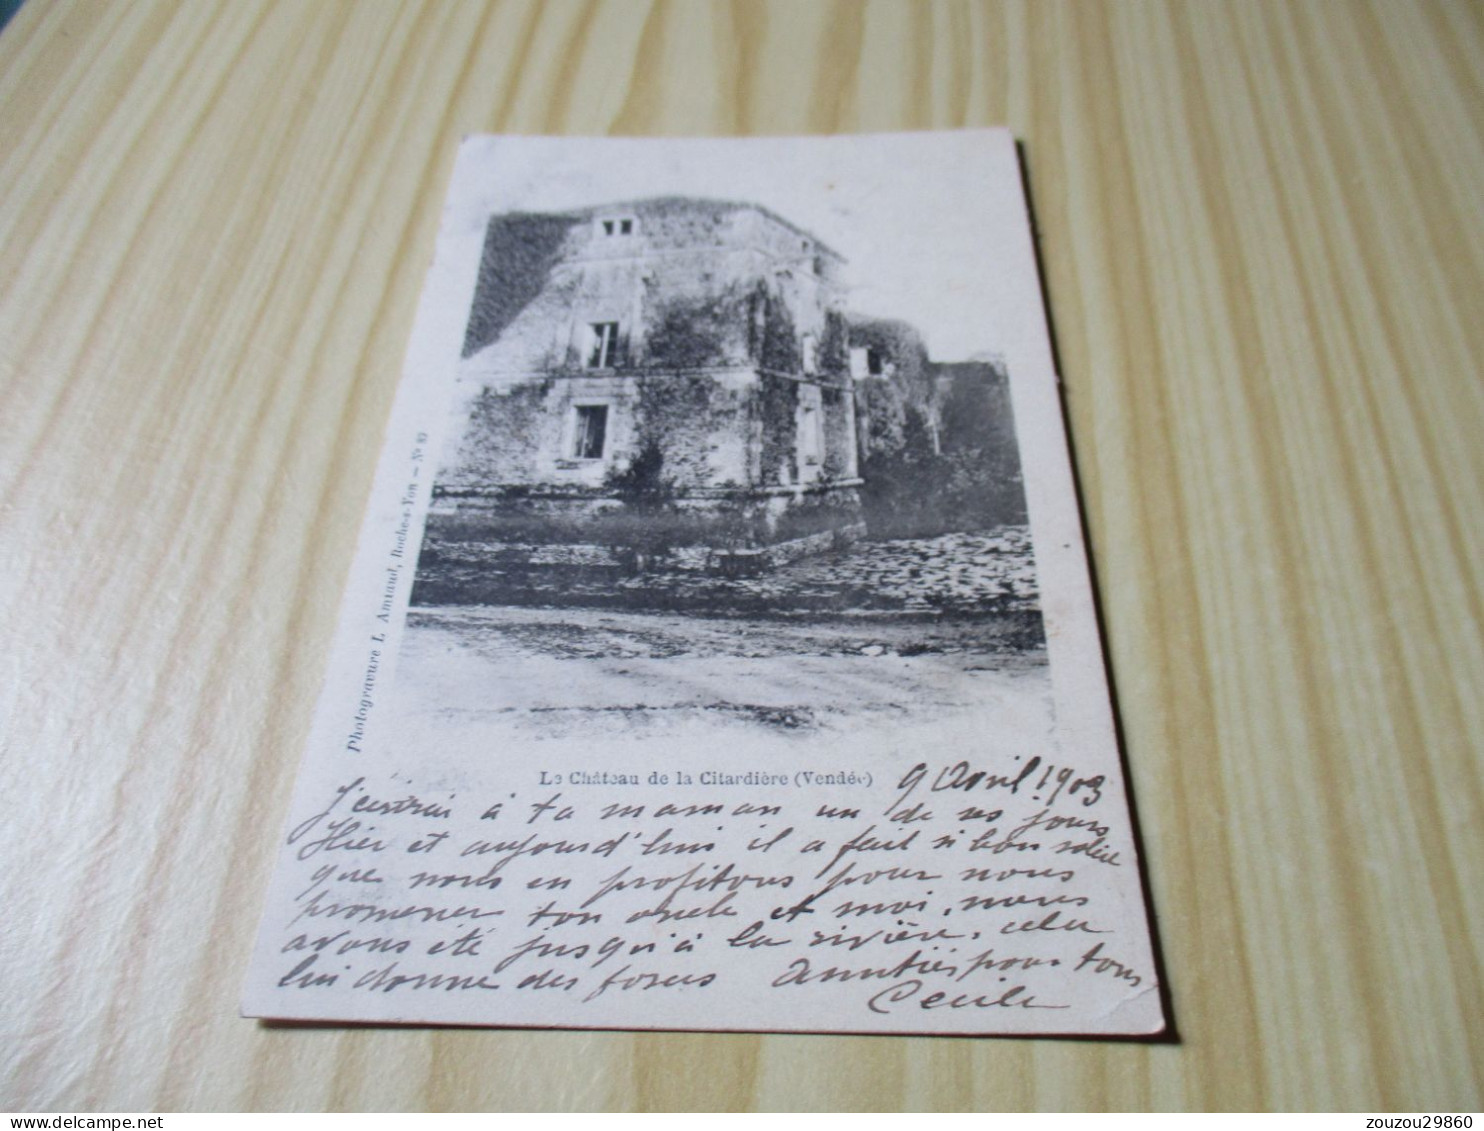 Photogravure L. Amiaud, Roche-s-Yon – No 82
Le Château de la Citardière (Vendée)
9 Avril 1903
J'écrirai à ta maman un de ses jours
Hier et aujourd'hui il a fait si bon soleil
que nous en profitons pour nous
promener ton oncle et moi, nous
avons été jusqu'à la rivière, cela
lui donne des forces Amitiés pour tous
Cécile
zouzou29860